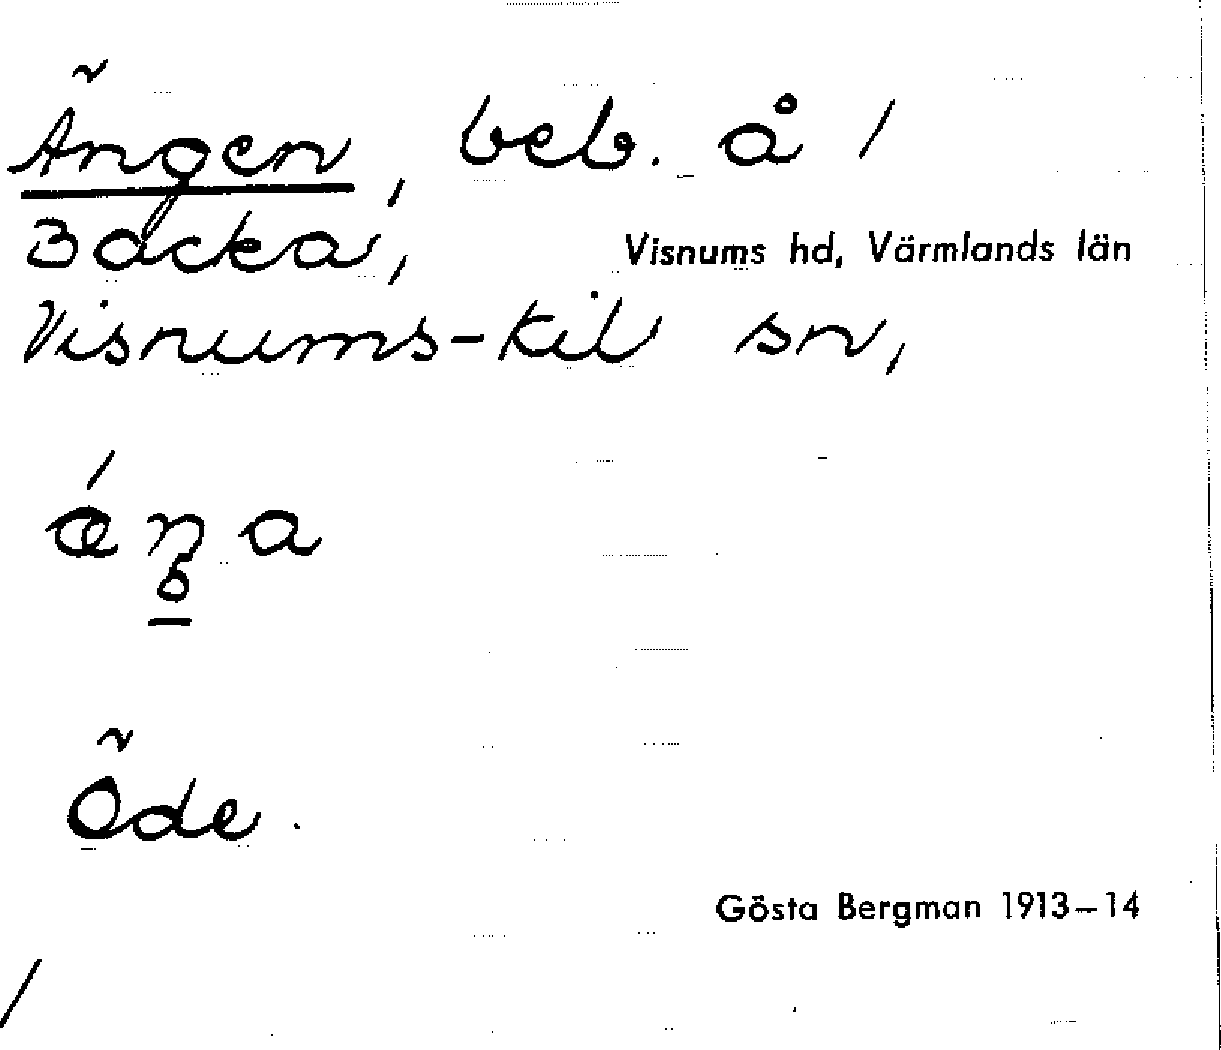 Ängen, beb. å /
Backa,
Visnums hd, Värmlands län
Visnums-Kil sn,
Öde.
Gösta Bergman 1913–14
/